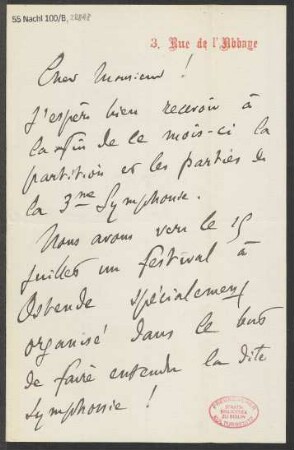 55 Nachl 100/B,
3. Rue de l'Abbaye
Cher Monsieur !
J'espère bien recevoir à
la fin de ce mois-ci la
partition et les parties de
la 3me Symphonie.
Nous avons vers le 15
juillet un festival à
Ostende spécialement
organisé dans le but
de faire entendre la dite
Symphonie !